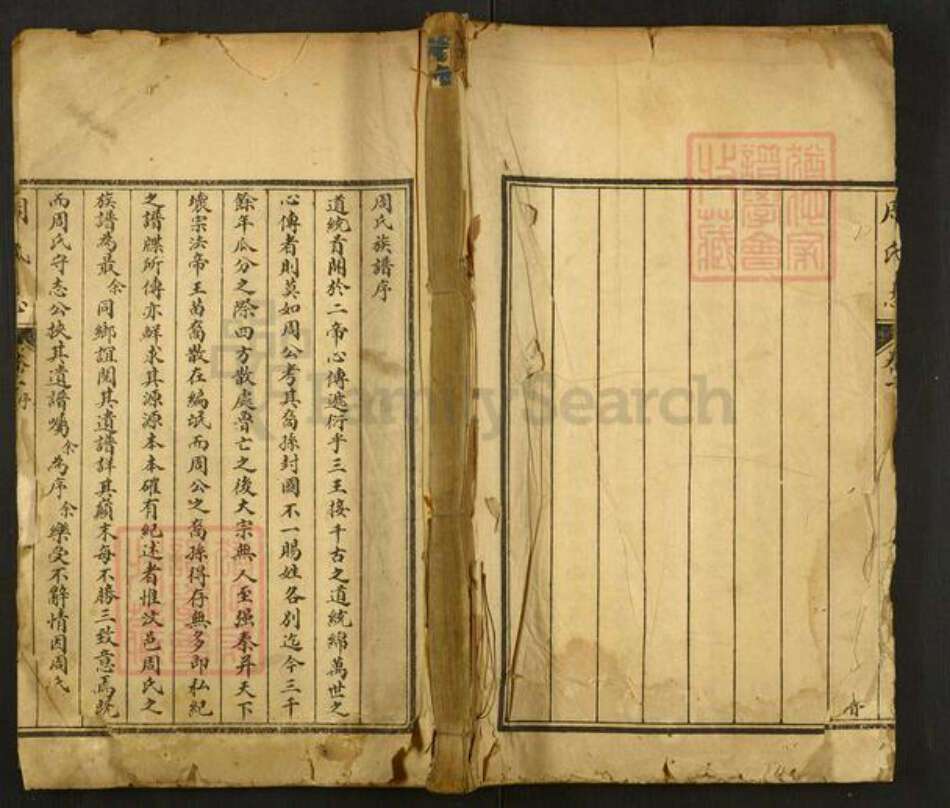 周氏族譜序
道統首開於二帝心傳遞衍乎三王接千古之道統綿萬世之
心傳者則莫如周公考其裔孫封國不一賜姓各別迄今三千
餘年瓜分之際四方散處魯亡之後大宗無人至强秦并天下
壞宗法帝王苗裔散在編氓而周公之裔孫得存無多即私紀
之譜牒所傳亦鮮求其源源本本確有紀述者惟汶邑周氏之
族譜為最余同鄉誼閱其遺譜詳其巔末每不勝三致意焉既
而周氏守志公挾其遺譜囑余為序余樂受不辭情因周氏
周氏
卷一
序
FamilySearch